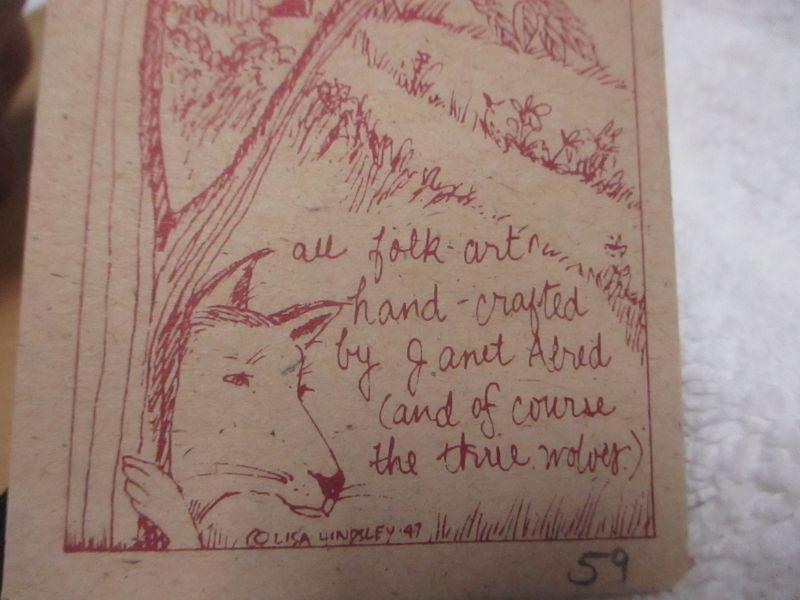 all folk-art
hand-crafted
by Janet Alred
(and of course
the three wolves.)
© LISA HINDSLEY '97
59